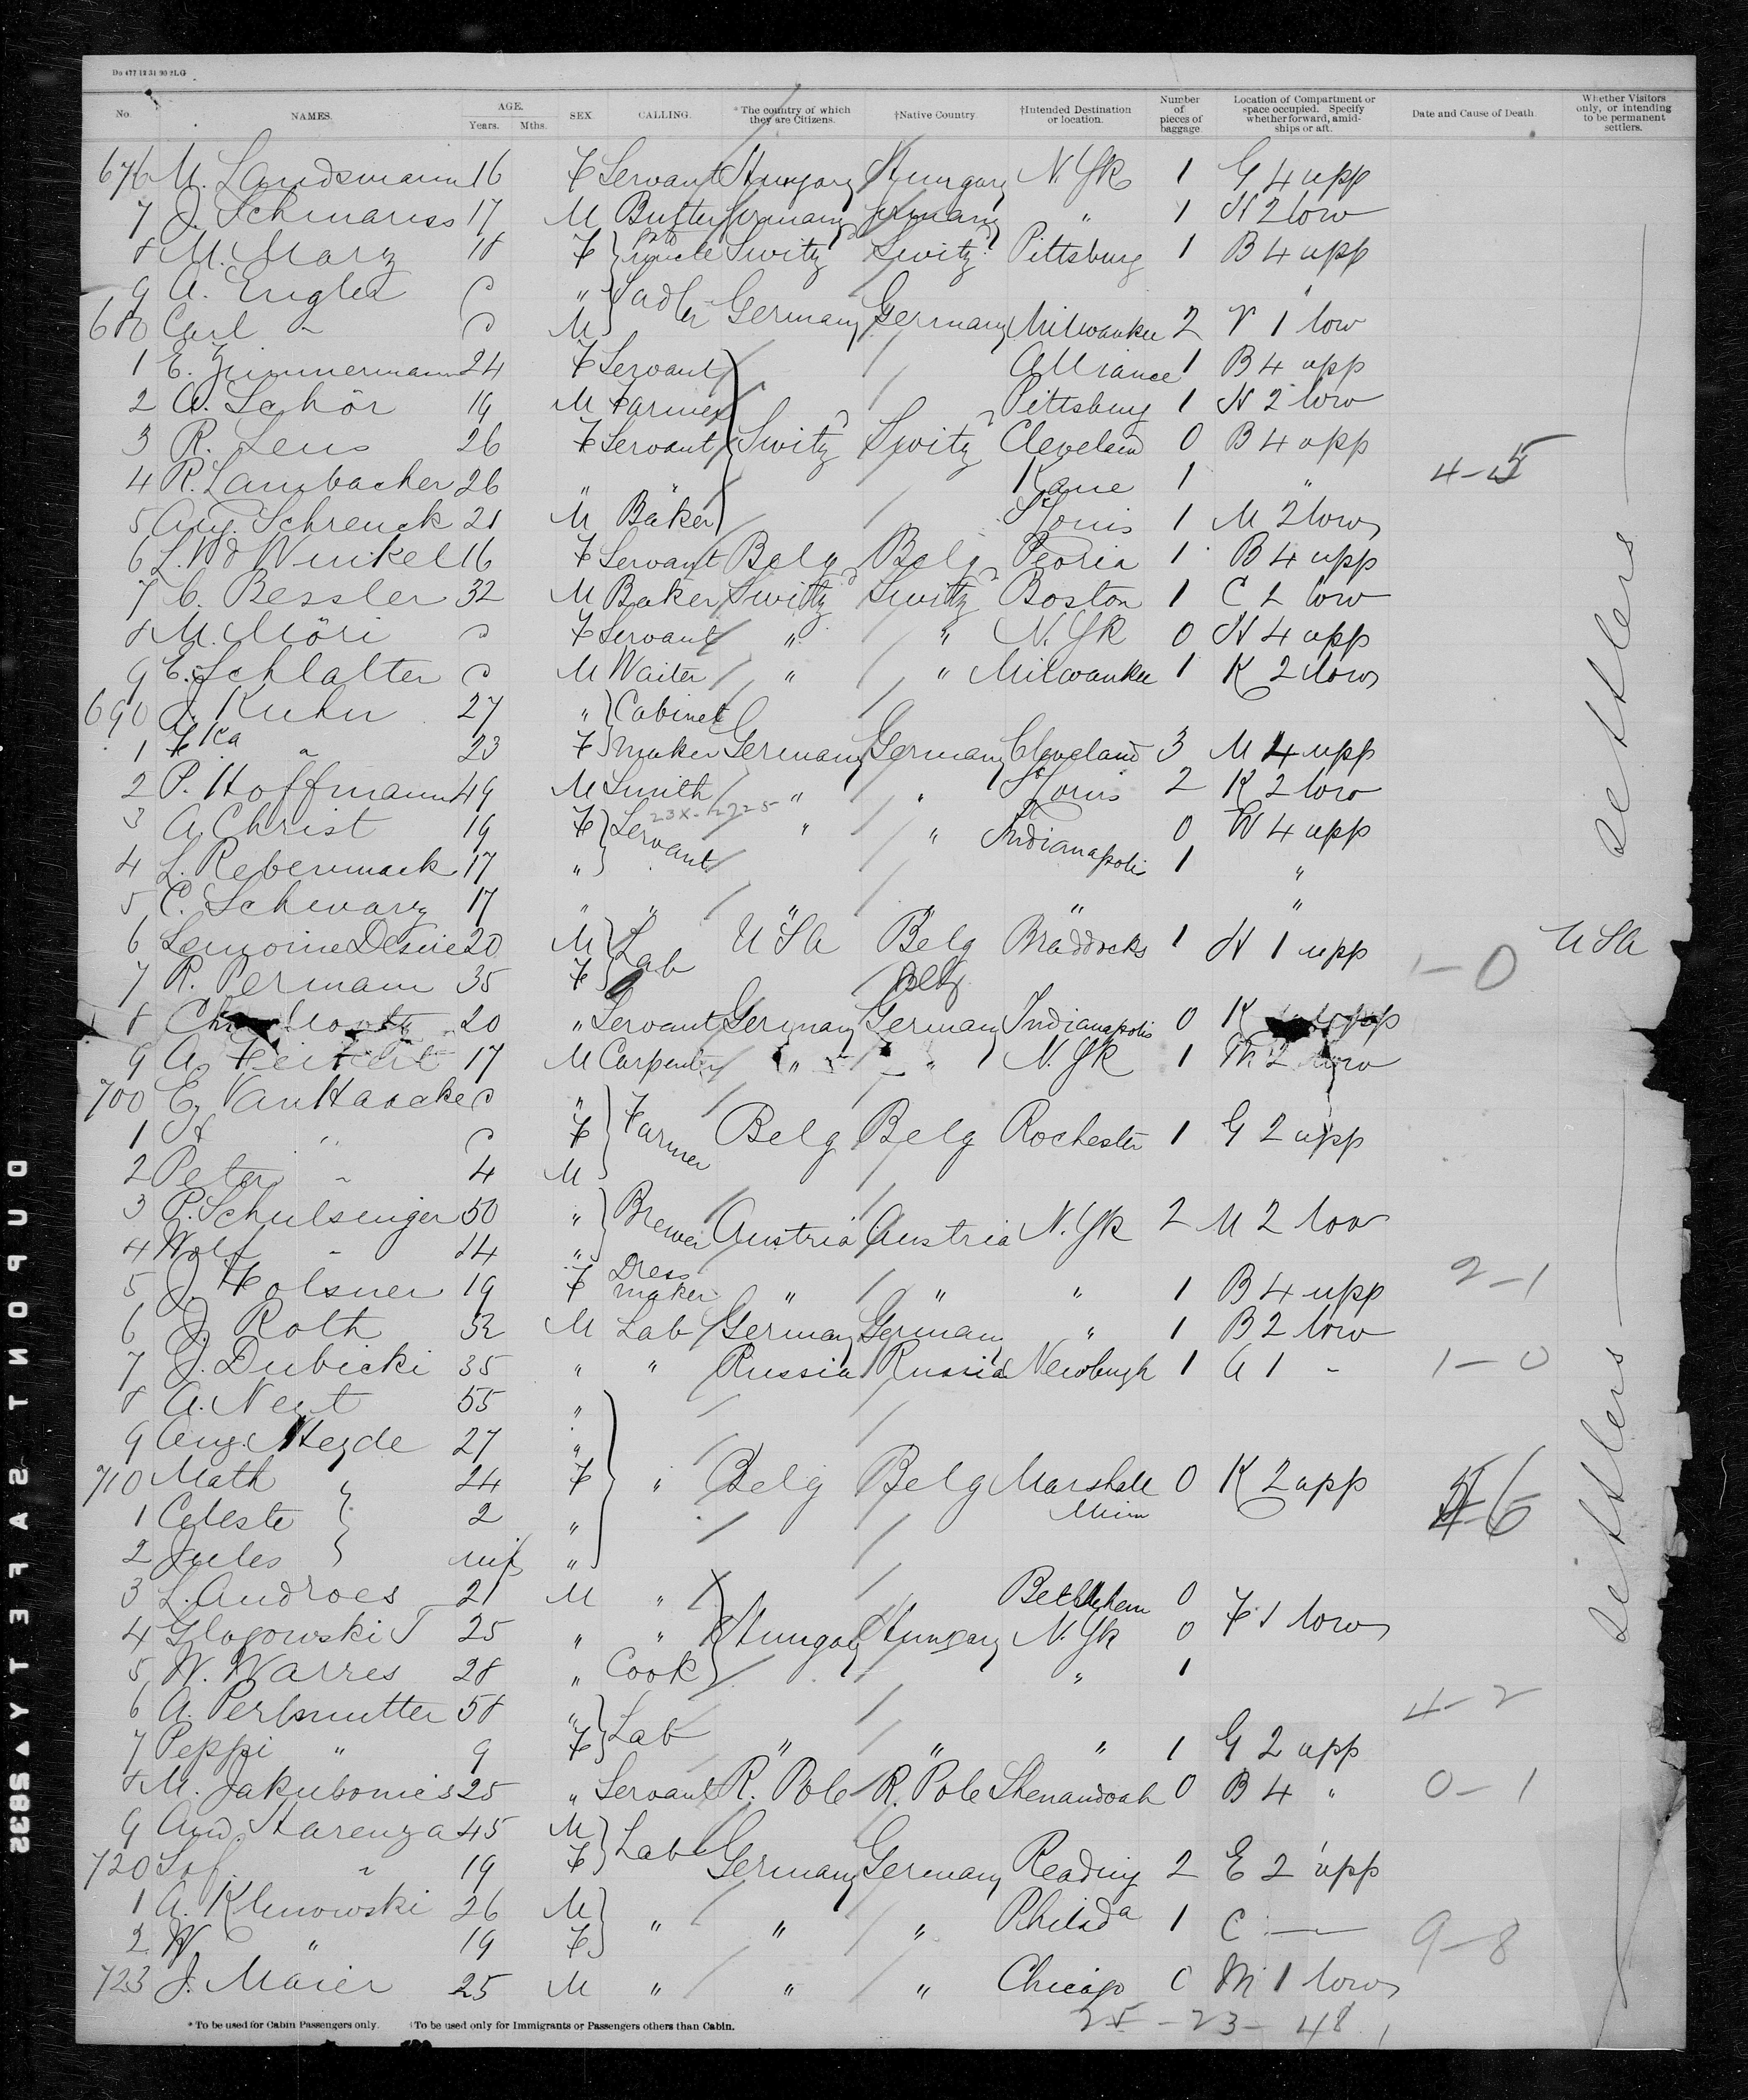 Do 477 12 31 90 2LG
No. NAMES. AGE. Years. Mths. SEX CALLING. *The country of which they are Citizens. †Native Country. †Intended Destination or location. Number of pieces of baggage. Location of Compartment or space occupied. Specify whether forward, amidships or aft. Date and Cause of Death. Whether Visitors only, or intending to be permanent settlers.
676 M. Landsmann 16 F Servant Hungary Hungary N.Yk 1 G 4 upp
7 J. Schmariss 17 M Germany Germany " 1 N 2 low
8 M. Marz 18 F Switz Switz Pittsburg 1 B 4 upp
9 A. Engler "
680 Carl " M Sadler Germany Germany Milwaukee 2 V 1 low
1 E. Zimmermann 24 F Servant Alliance 1 B 4 upp
2 A. Schör 19 M Farmer Pittsburg 1 N 2 low
3 R. Leus 26 F Servant Switz Switz Cleveland 0 B 4 upp
4 R. Lambacher 26 " " Kane 1 " 4-5
5 Aug. Schrenck 21 M Baker St Louis 1 M 2 low
6 L. Winkel 16 F Servant Belg Belg Peoria 1 B 4 upp
7 C. Bessler 32 M Baker Switz Switz Boston 1 C 2 low
8 M. Möri F Servant " " N.Yk 0 N 4 upp
9 E. Schlatter M Waiter " " Milwaukee 1 K 2 low
690 J. Kuhn 27 " Cabinet
1 " 23 F maker Germany Germany Cleveland 3 M 4 upp
2 P. Hoffmann 49 M Smith " " St Louis 2 K 2 low
23X-12725
3 A. Christ 19 F Servant " " Indianapolis 0 W 4 upp
4 L. Rebenmack 17 " 1 "
5 C. Schwarz 17 " " " " " "
6 Lemoine Desire 20 M Lab USA Belg Braddocks 1 N 1 upp USA
7 R. Permam 35 F Belg 1-0
8 20 " Servant Germany Germany Indianapolis 0 K
9 A. 17 M Carpenter " " N.Yk 1 M 2 low
700 E. Van Haacke "
1 " F Farmer Belg Belg Rochester 1 G 2 upp
2 Peter " 4 M
3 P. Schulsenger 50 " Brewer Austria Austria N.Yk 2 M 2 low
4 Wolf " 14 "
5 J. Holsner 19 F Dress maker " " " 1 B 4 upp 2-1
6 J. Roth 32 M Lab Germany Germany " 1 B 2 low
7 J. Dubicki 35 " " Russia Russia Newburgh 1 A 1 " 1-0
8 A. Neyt 55 "
9 Aug. Heyde 27 "
710 Math " 24 F " Belg Belg Marshall Minn 0 K 2 upp
1 Celeste 2 "
2 Jules inf "
3 L. Androes 21 M " Bethlehem 0 F 1 low
4 Glogowski J 25 " " Hungary Hungary N.Yk 0
5 W. Warres 28 " Cook " 1
6 A. Perlmutter 58 " Lab 4-2
7 Peppi " 9 F " " " 1 G 2 upp
8 M. Jakubonies 25 " Servant R. Pole R. Pole Shenandoah 0 B 4 " 0-1
9 And. Harenza 45 M Lab
720 Sof. " 19 F Germany Germany Reading 2 E 2 upp
1 A. Klinowski 26 M " " " Philada 1 C
2 W " 19 F 9-8
723 J. Maier 25 M " " " Chicago 0 M 1 low
25-23-48
settlers
settlers
*To be used for Cabin Passengers only. †To be used only for Immigrants or Passengers others than Cabin.
DUPONT SAFETY 2832